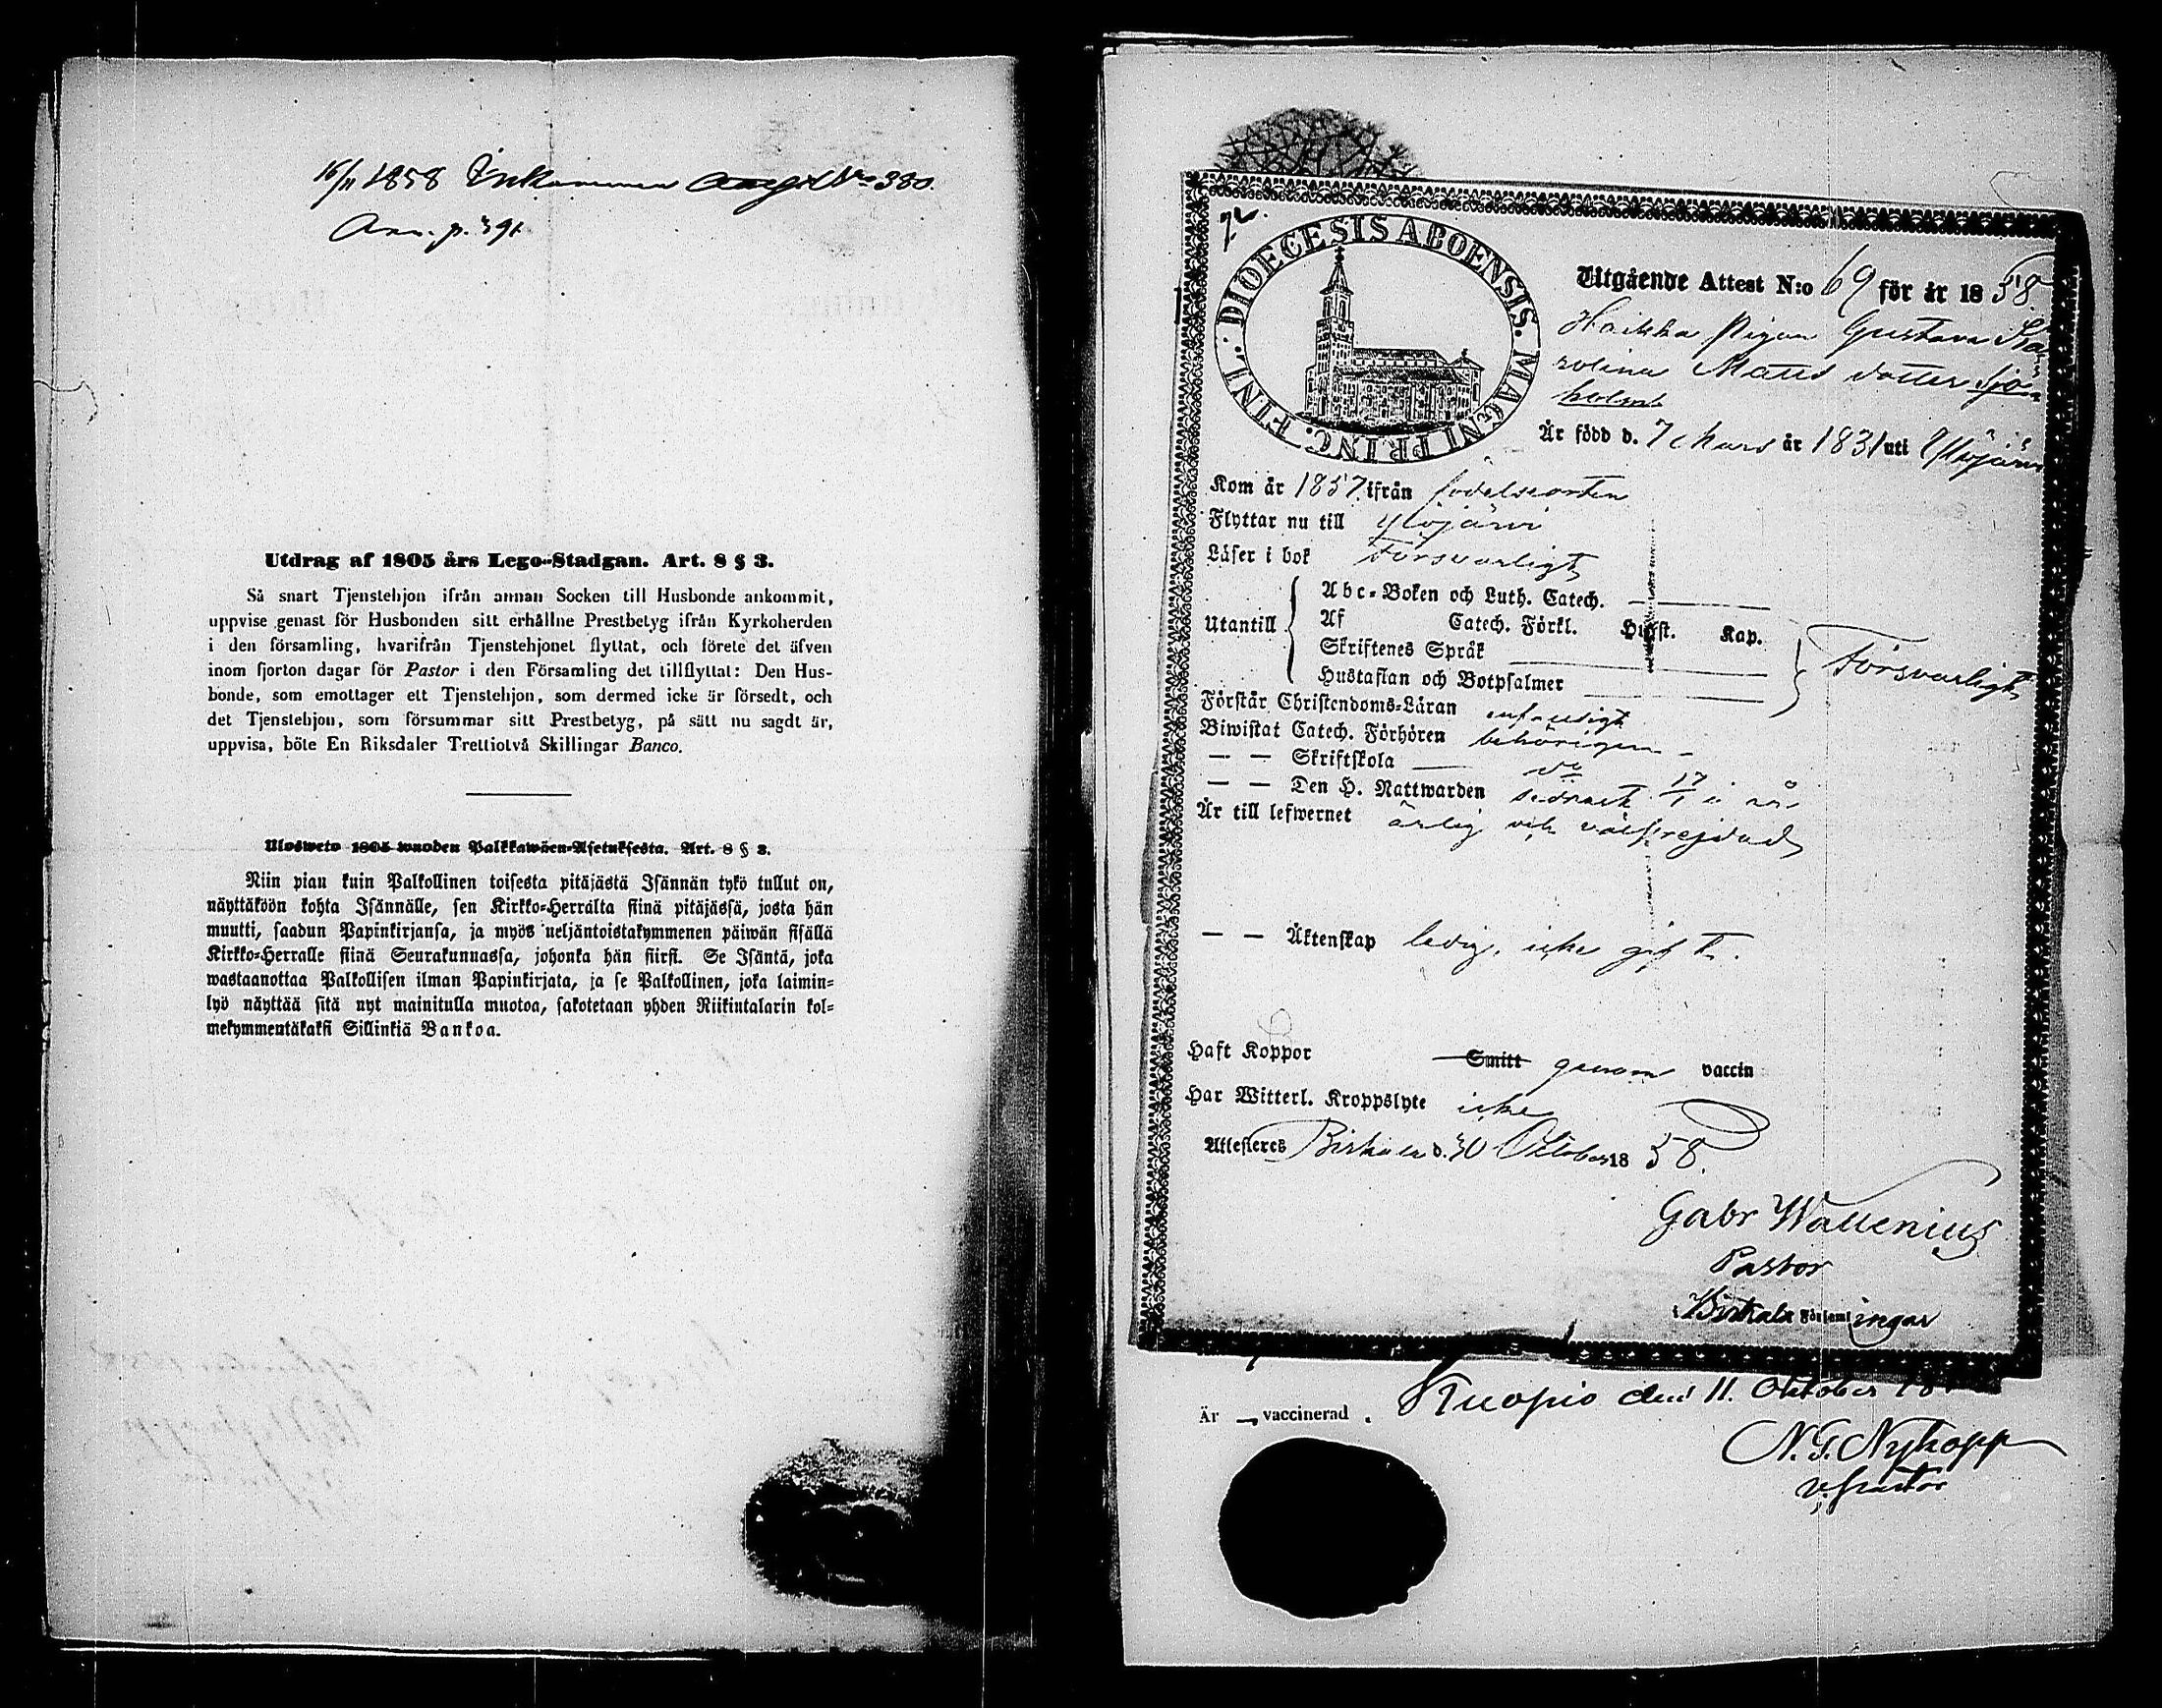 16/11 1858 Inkommen No 380.
Ann. p. 391
Utdrag af 1805 års Lego-Stadgan. Art. 8 § 3.
Så snart Tjenstehjon ifrån annan Socken till Husbonde ankommit,
uppvise genast för Husbonden sitt erhållne Prestbetyg ifrån Kyrkoherden
i den församling, hvarifrån Tjenstehjonet flyttat, och förete det äfven
inom fjorton dagar för Pastor i den Församling det tillflyttat: Den Hus-
bonde, som emottager ett Tjenstehjon, som dermed icke är försedt, och
det Tjenstehjon, som försummar sitt Prestbetyg, på sätt nu sagdt är,
uppvisa, böte En Riksdaler Trettiotvå Skillingar Banco.
Ulosweto 1805 wuoden Palkkawäen-Asetuksesta. Art. 8 § 3.
Niin pian kuin Palkollinen toisesta pitäjästä Isännän tykö tullut on,
näyttäköön kohta Isännälle, sen Kirkko-Herralta siinä pitäjässä, josta hän
muutti, saadun Papinkirjansa, ja myös neljäntoistakymmenen päiwän sisällä
Kirkko-Herralle siinä Seurakunnassa, johonka hän siirsi. Se Isäntä, joka
wastaanottaa Palkollisen ilman Papinkirjata, ja se Palkollinen, joka laimin-
lyö näyttää sitä nyt mainitulla muotoa, sakotetaan yhden Riikintalarin kol-
mekymmentäkaksi Sillinkiä Bankoa.
DIOECESIS ABOENSIS. MAGNI PRINC. FINL.
Utgående Attest N:o 69 för år 1858
Haikka Pigan Gustava Ka
rolina Matts dotter Sjö
holm
Är född d. 7 Mars år 1831 uti Ylöjärvi
Kom år 1857 ifrån födelseorten
Flyttar nu till Ylöjärvi
Läser i bok Försvarligt
Abc-Boken och Luth. Catech.
Utantill Af Catech. Förkl. Hufst. Kap.
Skriftenes Språk
Försvarligt
Hustaflan och Botpsalmer
Förstår Christendoms-Läran enfaldigt
Biwistat Catech. Förhören behörigen
— — Skriftskola do
— — Den H. Nattwarden sednast 17/1 i år
Är till lefwernet ärlig och välfrejdad
— — Äktenskap ledig, icke gift.
Haft Koppor Smitt genom vaccin
Har Witterl. Kroppslyte icke
Attesteres Birkala d. 30 Oktober 1858.
Gabr Wallenius
Pastor
i Birkala Församlingar
Är vaccinerad. Kuopio den 11. Oktober 18
N. G. Nykopp
v. pastor